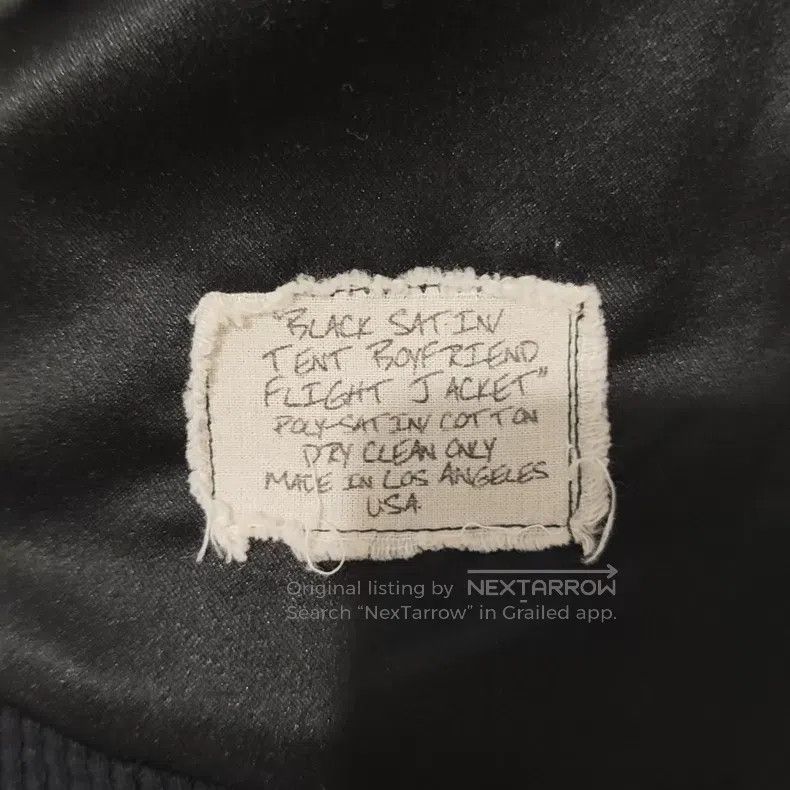 "BLACK SATIN
TENT BOYFRIEND
FLIGHT JACKET"
POLY-SATIN/COTTON
DRY CLEAN ONLY
MADE IN LOS ANGELES
USA
Original listing by NEXTARROW
Search "NexTarrow" in Grailed app.